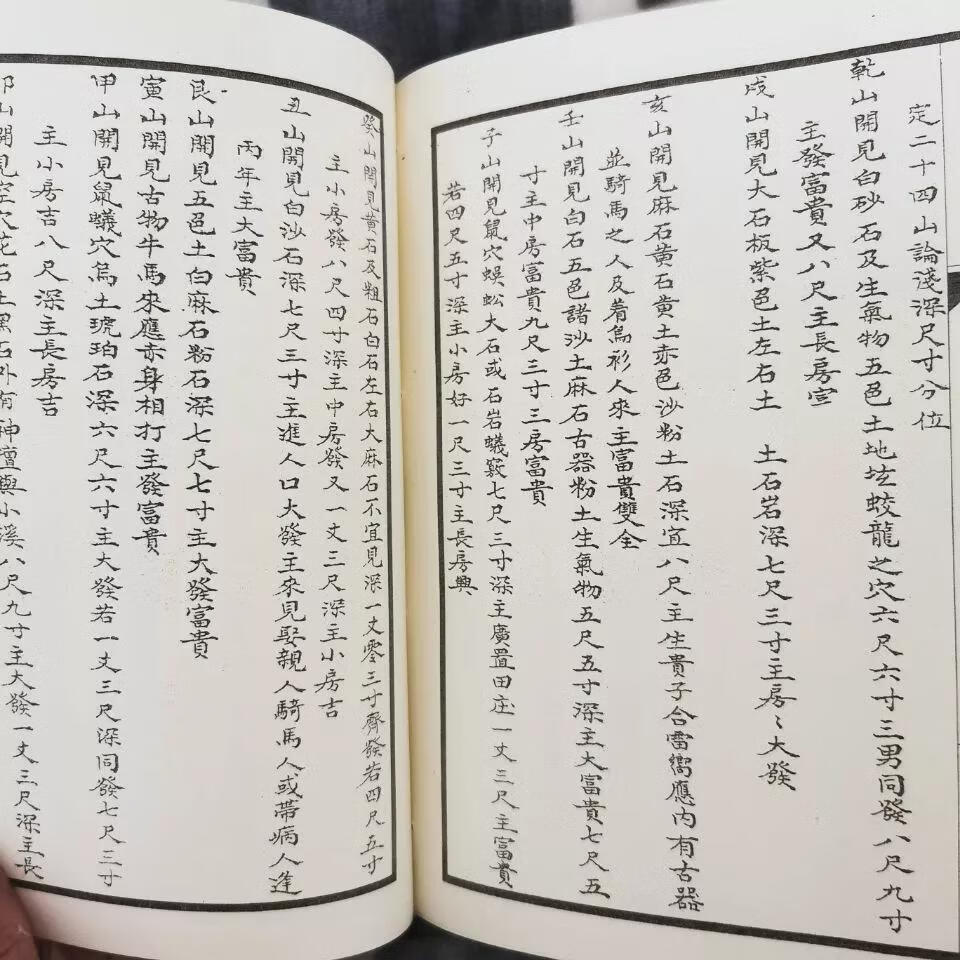 定二十四山論淺深尺寸分位
乾山開見白砂石及生氣物五邑土地圪蛟龍之穴六尺六寸三男同發八尺九寸
主發富貴又八尺主長房宣
戍山開見大石板紫邑土左右土 土石岩深七尺三寸主房〻大發
亥山開見麻石黄石黄土赤邑沙粉土石深宜八尺主生貴子合雷嚮應内有古器
並騎馬之人及着烏衫人來主富貴雙全
壬山開見白石五邑諸沙土麻石古器粉土生氣物五尺五寸深主大富貴七尺五
寸主中房富貴九尺三寸三房富貴
子山開見鼠穴蜈蚣大石或石岩蟻竅七尺三寸深主廣置田庄一丈三尺主富貴
若四尺五寸深主小房好一尺三寸主長房興
癸山開見黄石及粗石白石左右大麻石不宜見深一丈零三寸齊發若四尺五寸
主小房發八尺四寸深主中房發又一丈三尺深主小房吉
丑山開見白沙石深七尺三寸主進人口大發主來見娶親人騎馬人或帶病人逢
丙年主大富貴
艮山開見五邑土白麻石粉石深七尺七寸主大發富貴
寅山開見古物牛馬來應赤身相打主發富貴
甲山開見鼠蟻穴烏土琥珀石深六尺六寸主大發若一丈三尺深同發七尺三寸
主小房吉八尺深主長房吉
卯山開見空穴花石土黑石外有神壇興小溪八尺九寸主大發一丈三尺深主長